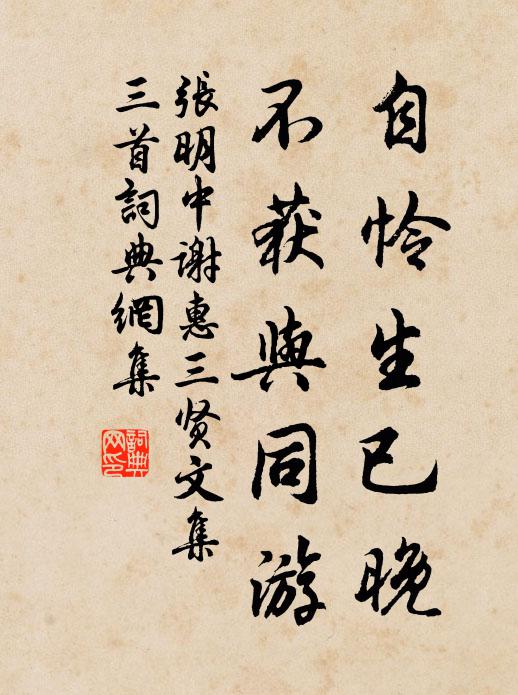 自怜生已晚
不获與同游
張明中谢惠三贤文集
三首詞典網集
詞典
网印